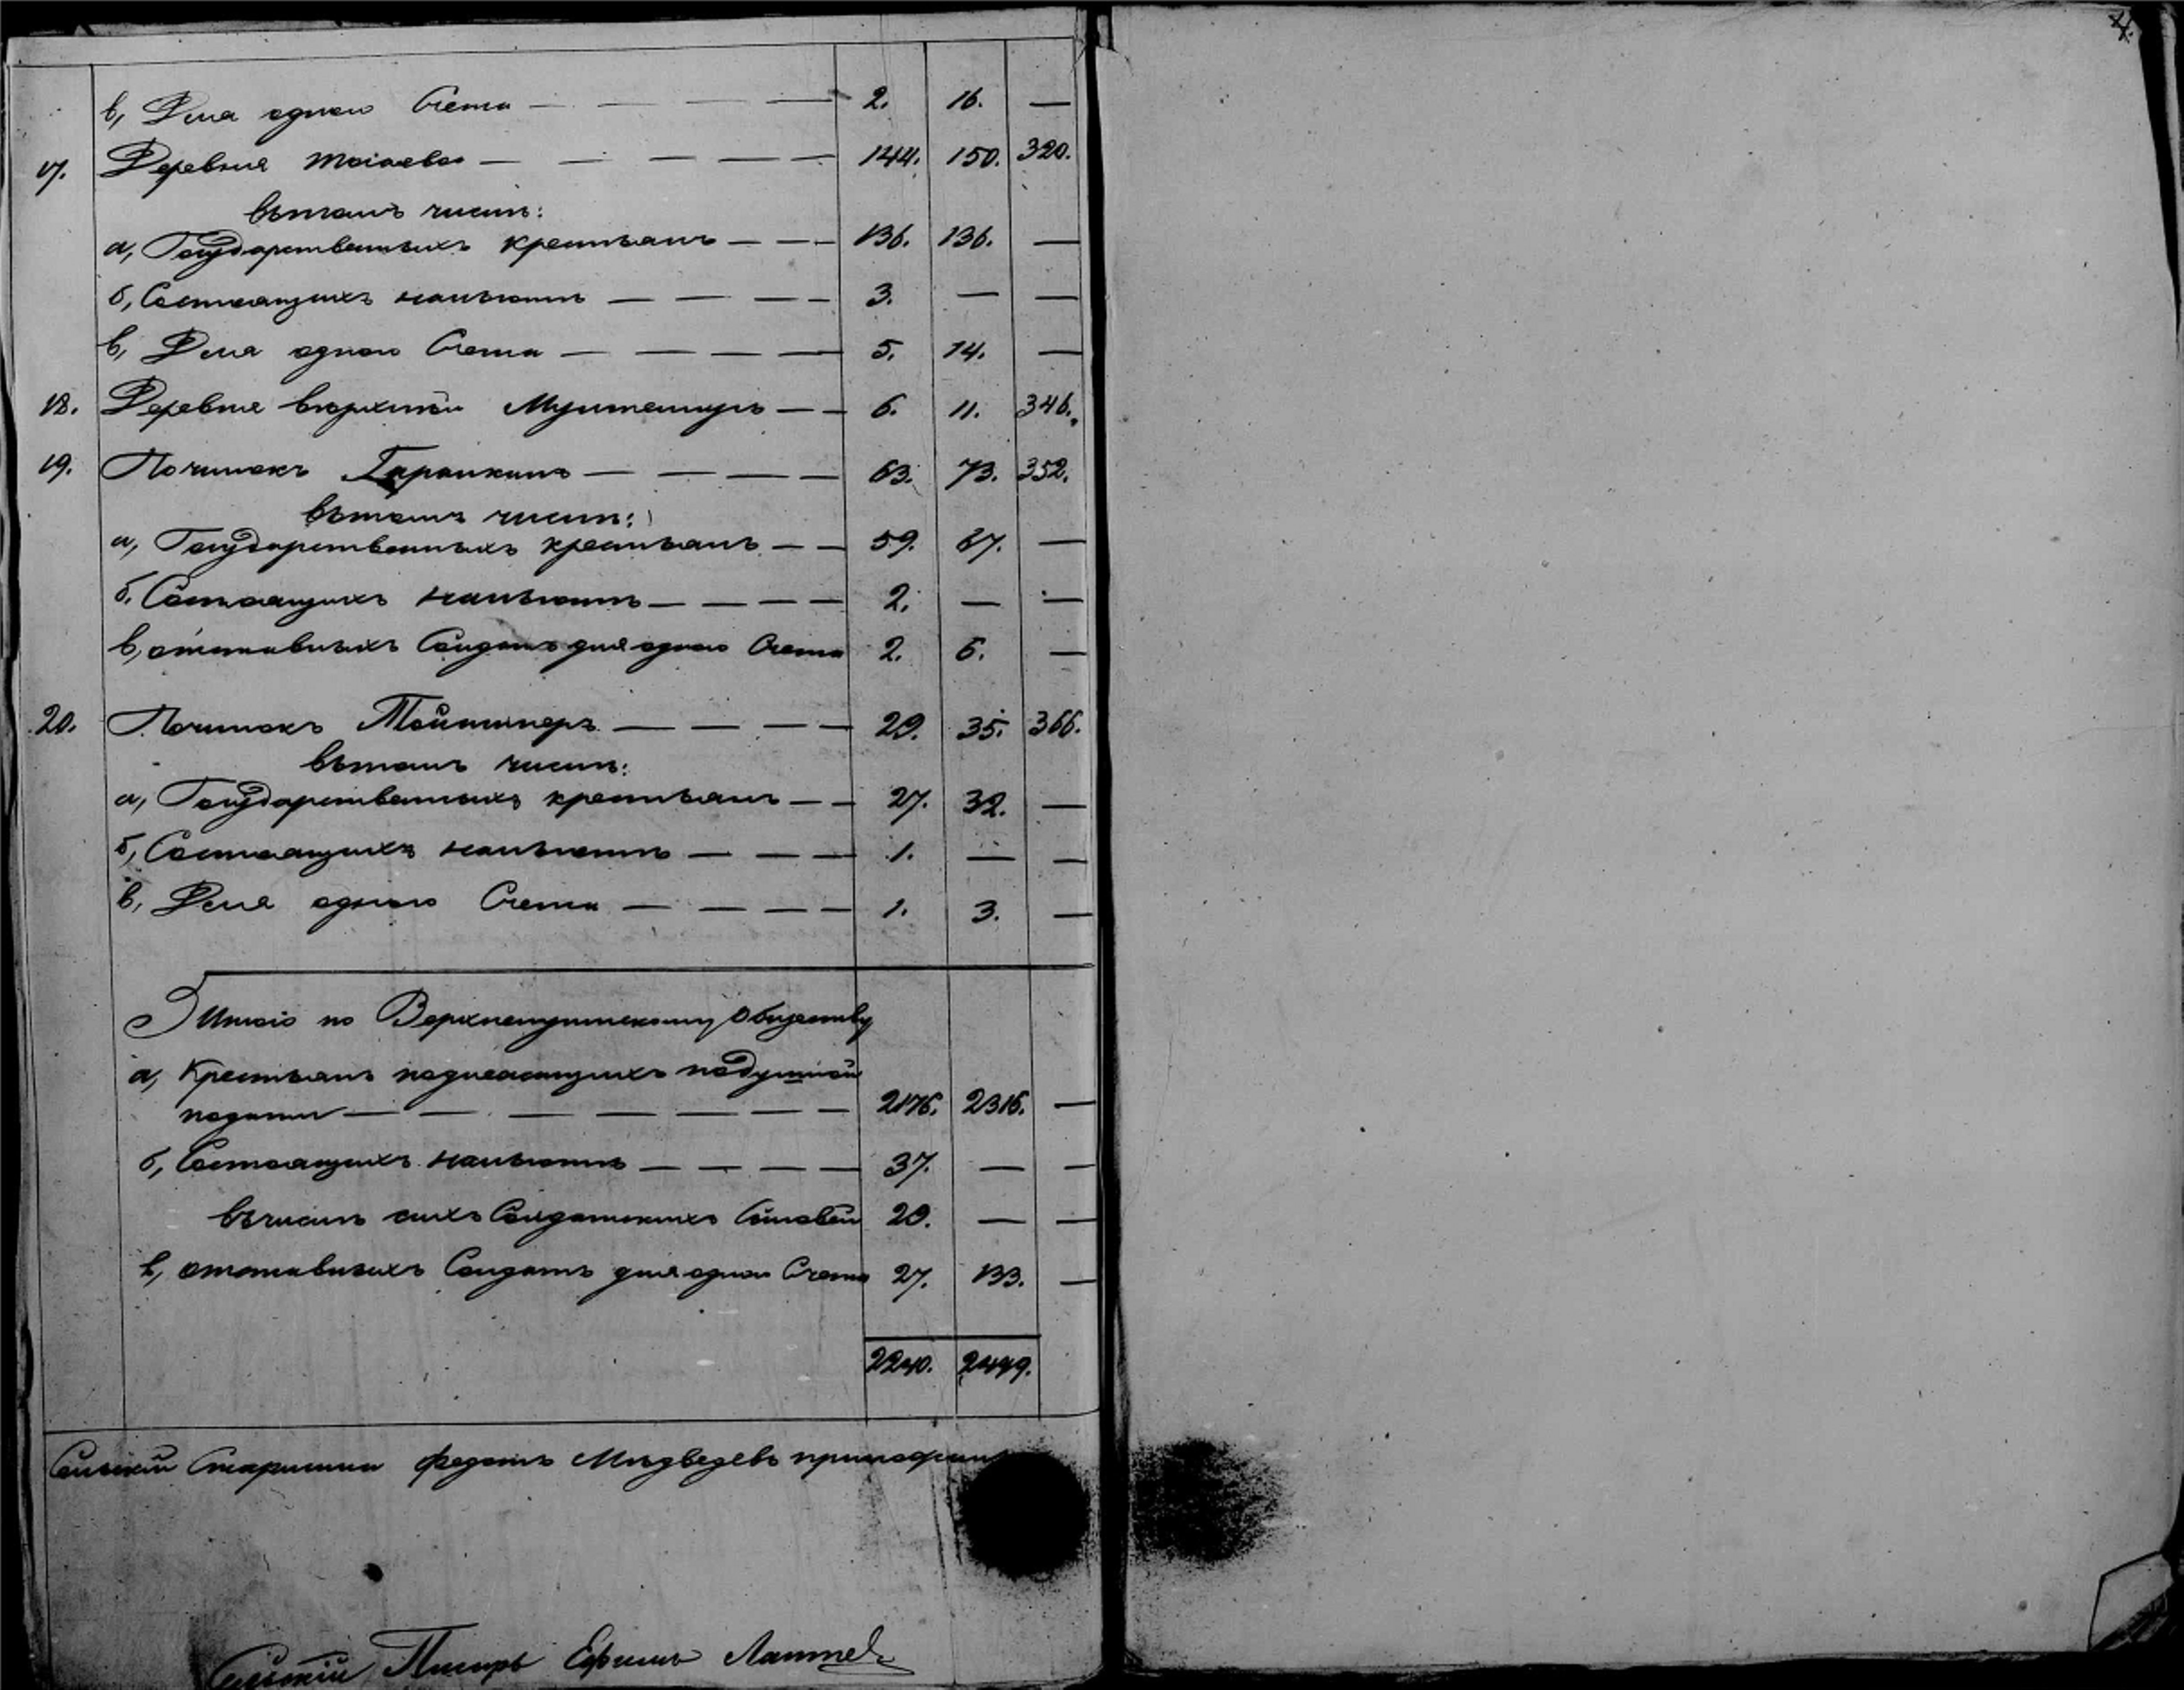 4.
в, Для одного Счета — — — — 2. 16. —
17. Деревня — — — — — 144. 150. 320.
въ томъ числѣ:
а, Государственныхъ крестьянъ — — — 136. 136. —
б, Состоящихъ на льготѣ — — — — 3. — —
в, Для одного Счета — — — — 5. 14. —
18. Деревня — — 6. 11. 346.
19. Починокъ — — — — 63. 73. 352.
въ томъ числѣ:
а, Государственныхъ крестьянъ — — 59. 67. —
б, Состоящихъ на льготѣ — — — — 2. — —
в, отставныхъ Солдатъ для одного Счета 2. 6. —
20. Починокъ — — — — 29. 35. 366.
въ томъ числѣ:
а, Государственныхъ крестьянъ — — 27. 32. —
б, Состоящихъ на льготѣ — — — 1. — —
в, Для одного Счета — — — — 1. 3. —
Итого по Обществу
а, Крестьянъ подлежащихъ подушной
подати — — — — — — — 2176. 2316. —
б, Состоящихъ на льготѣ — — — — 37. — —
въ числѣ сихъ Солдатскихъ Сыновей 29. — —
в, отставныхъ Солдатъ для одного Счета 27. 133. —
2240. 2449.
Сельскій Старшина Федотъ Мѣдведевъ
Сельскій Писарь Ефимъ Лаптевъ